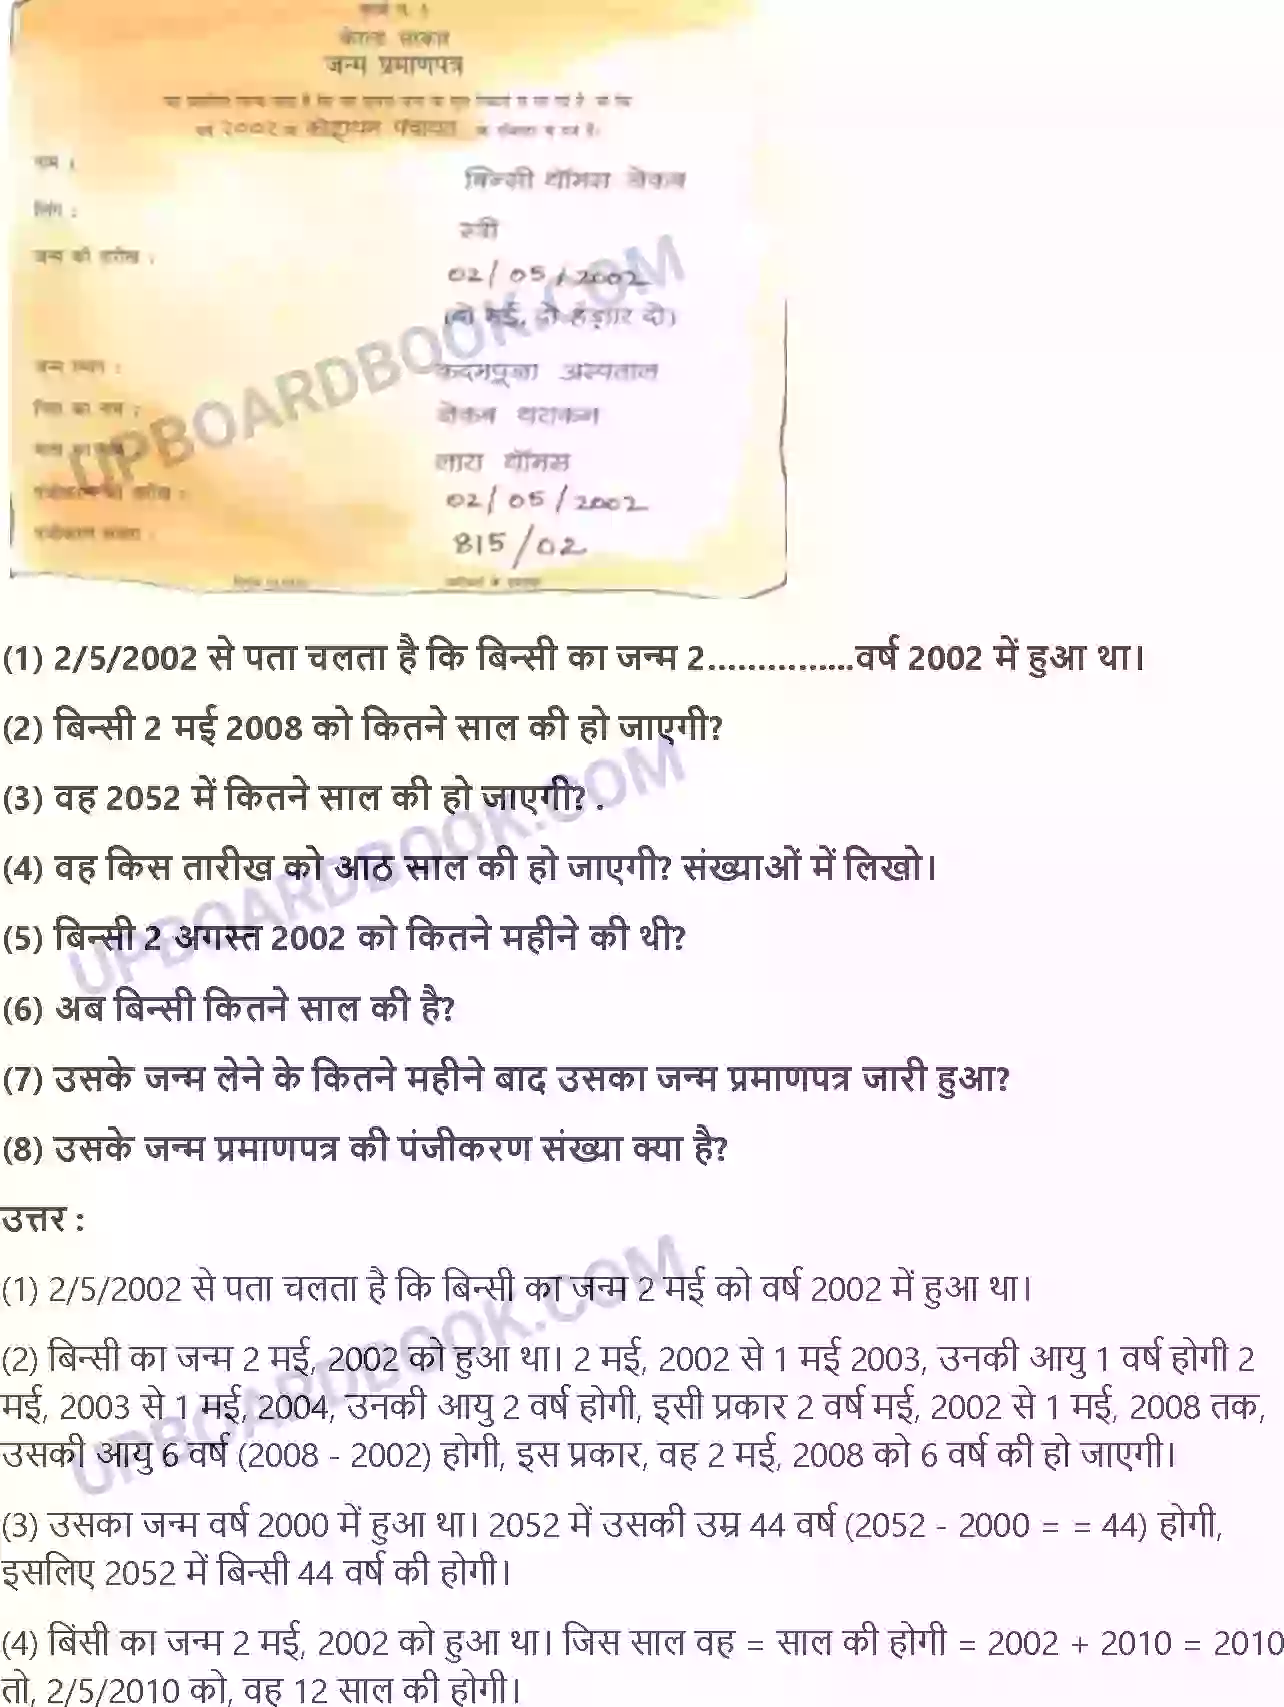 केरल सरकार
जन्म प्रमाणपत्र
वर्ष 2002 कोट्टाथन पंचायत
नाम :
बिन्सी थॉमस जेकब
लिंग :
स्त्री
जन्म की तारीख :
02/05/2002
(दो मई, दो हज़ार दो)
जन्म स्थान :
कदमपूजा अस्पताल
पिता का नाम :
जेकब थराकन
लारा थॉमस
02/05/2002
815/02
UPBOARDBOOK.COM
(1) 2/5/2002 से पता चलता है कि बिन्सी का जन्म 2...............वर्ष 2002 में हुआ था।
(2) बिन्सी 2 मई 2008 को कितने साल की हो जाएगी?
(3) वह 2052 में कितने साल की हो जाएगी? .
(4) वह किस तारीख को आठ साल की हो जाएगी? संख्याओं में लिखो।
UPBOARDBOOK.COM
(5) बिन्सी 2 अगस्त 2002 को कितने महीने की थी?
(6) अब बिन्सी कितने साल की है?
(7) उसके जन्म लेने के कितने महीने बाद उसका जन्म प्रमाणपत्र जारी हुआ?
(8) उसके जन्म प्रमाणपत्र की पंजीकरण संख्या क्या है?
उत्तर :
(1) 2/5/2002 से पता चलता है कि बिन्सी का जन्म 2 मई को वर्ष 2002 में हुआ था।
UPBOARDBOOK.COM
(2) बिन्सी का जन्म 2 मई, 2002 को हुआ था। 2 मई, 2002 से 1 मई 2003, उनकी आयु 1 वर्ष होगी 2
मई, 2003 से 1 मई, 2004, उनकी आयु 2 वर्ष होगी, इसी प्रकार 2 वर्ष मई, 2002 से 1 मई, 2008 तक,
उसकी आयु 6 वर्ष (2008 - 2002) होगी, इस प्रकार, वह 2 मई, 2008 को 6 वर्ष की हो जाएगी।
(3) उसका जन्म वर्ष 2000 में हुआ था। 2052 में उसकी उम्र 44 वर्ष (2052 - 2000 = = 44) होगी,
इसलिए 2052 में बिन्सी 44 वर्ष की होगी।
(4) बिंसी का जन्म 2 मई, 2002 को हुआ था। जिस साल वह = साल की होगी = 2002 + 2010 = 2010
तो, 2/5/2010 को, वह 12 साल की होगी।